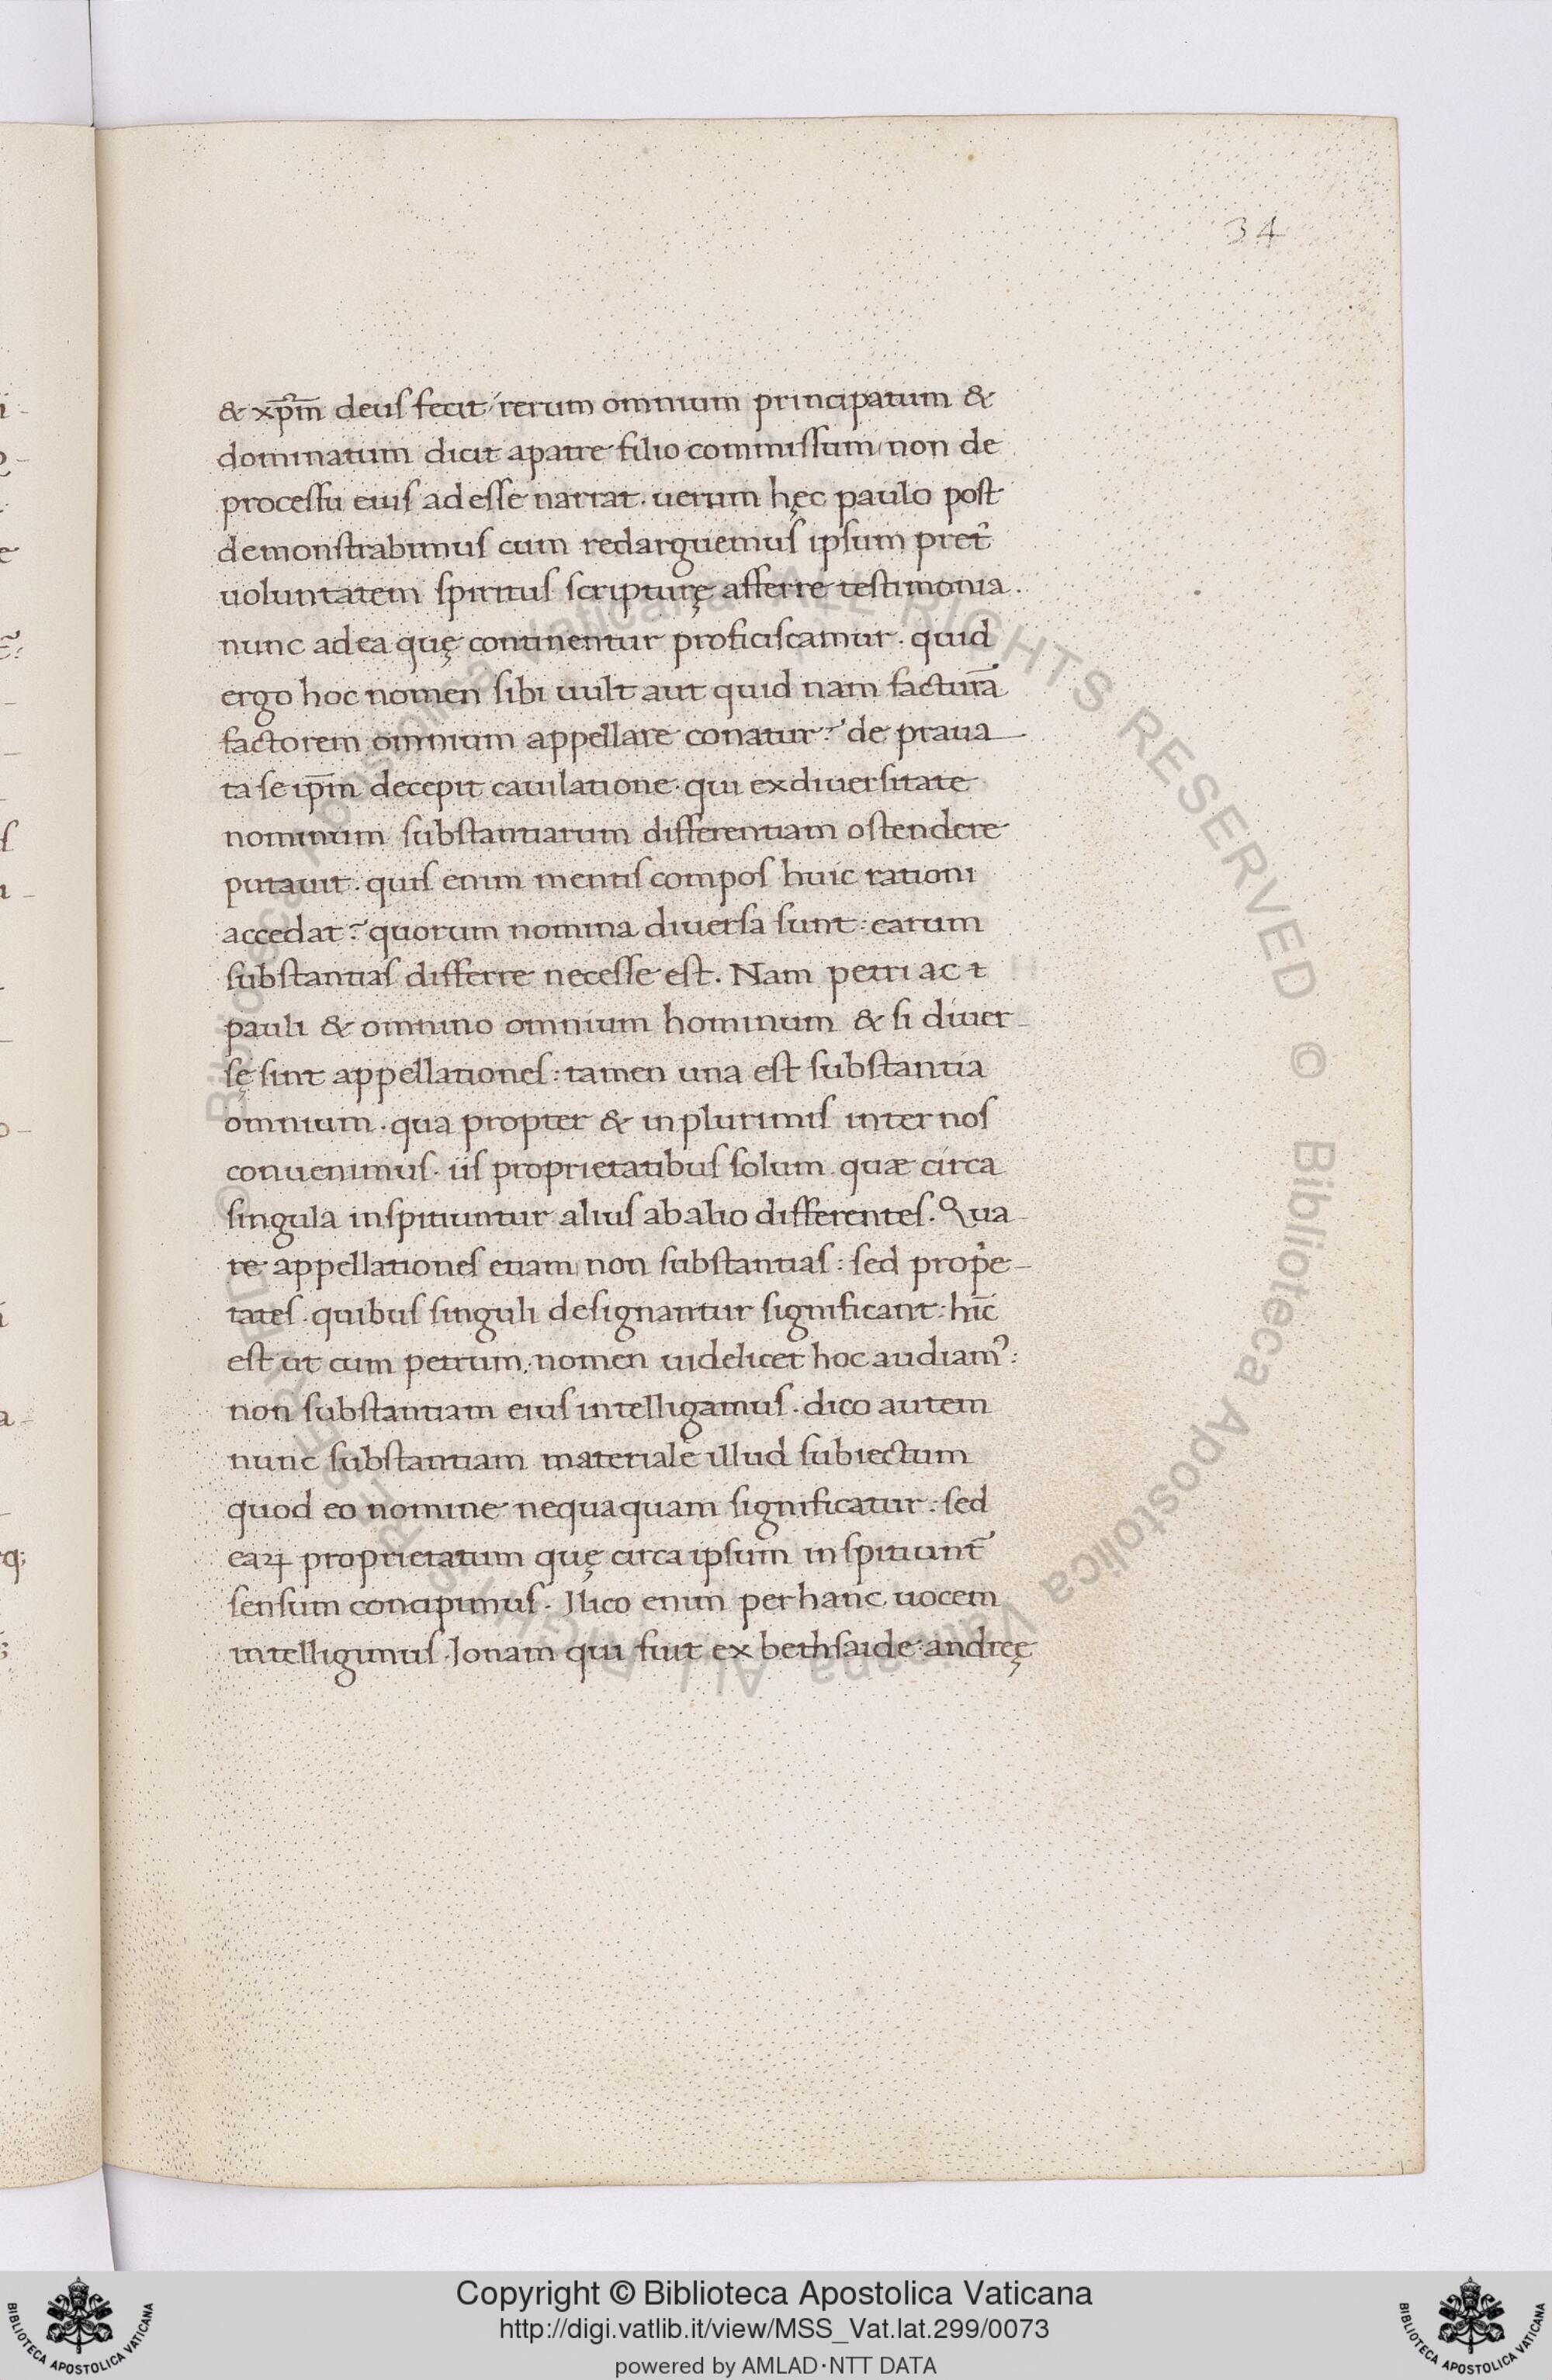 34
& xp̄m̄ deus fecit rerum omnium principatum &
dominatum dicit apatre filio commissum, non de
processu eius ad esse narrat. uerum hęc paulo post
demonstrabimus cum redarguemus ipsum pret᷑
uoluntatem spiritus scripturę afferre testimonia.
nunc ad ea quę continentur proficiscamur. quid
ergo hoc nomen sibi uult aut quid nam facturā
factorem omnium appellare conatur? de praua
ta se ip̄m decepit cauilatione. qui ex diuersitate
nominum substantiarum differentiam ostendere
putauit. quis enim mentis compos huic rationi
accedat? quorum nomina diuersa sunt: earum
substantias differre necesse est. Nam petri ac
pauli & omnino omnium hominum & si diuer-
sę sint appellationes: tamen una est substantia
omnium. qua propter & in plurimis inter nos
conuenimus. iis proprietatibus solum quæ circa
singula inspitiuntur alius ab alio differentes. Qua-
re appellationes etiam non substantias: sed prop̓e-
tates. quibus singuli designantur significant: hīc
est ut cum petrum, nomen uidelicet hoc audiamꝰ:
non substantiam eius intelligamus. dico autem
nunc substantiam materiale illud subiectum
quod eo nomine nequaquam significatur: sed
eaꝝ proprietatum quę circa ipsum inspitiunt᷑
sensum concipimus. Ilico enim per hanc uocem
intelligimus Jonam qui fuit ex bethsaide andreę
Copyright © Biblioteca Apostolica Vaticana
http://digi.vatlib.it/view/MSS_Vat.lat.299/0073
powered by AMLAD·NTT DATA